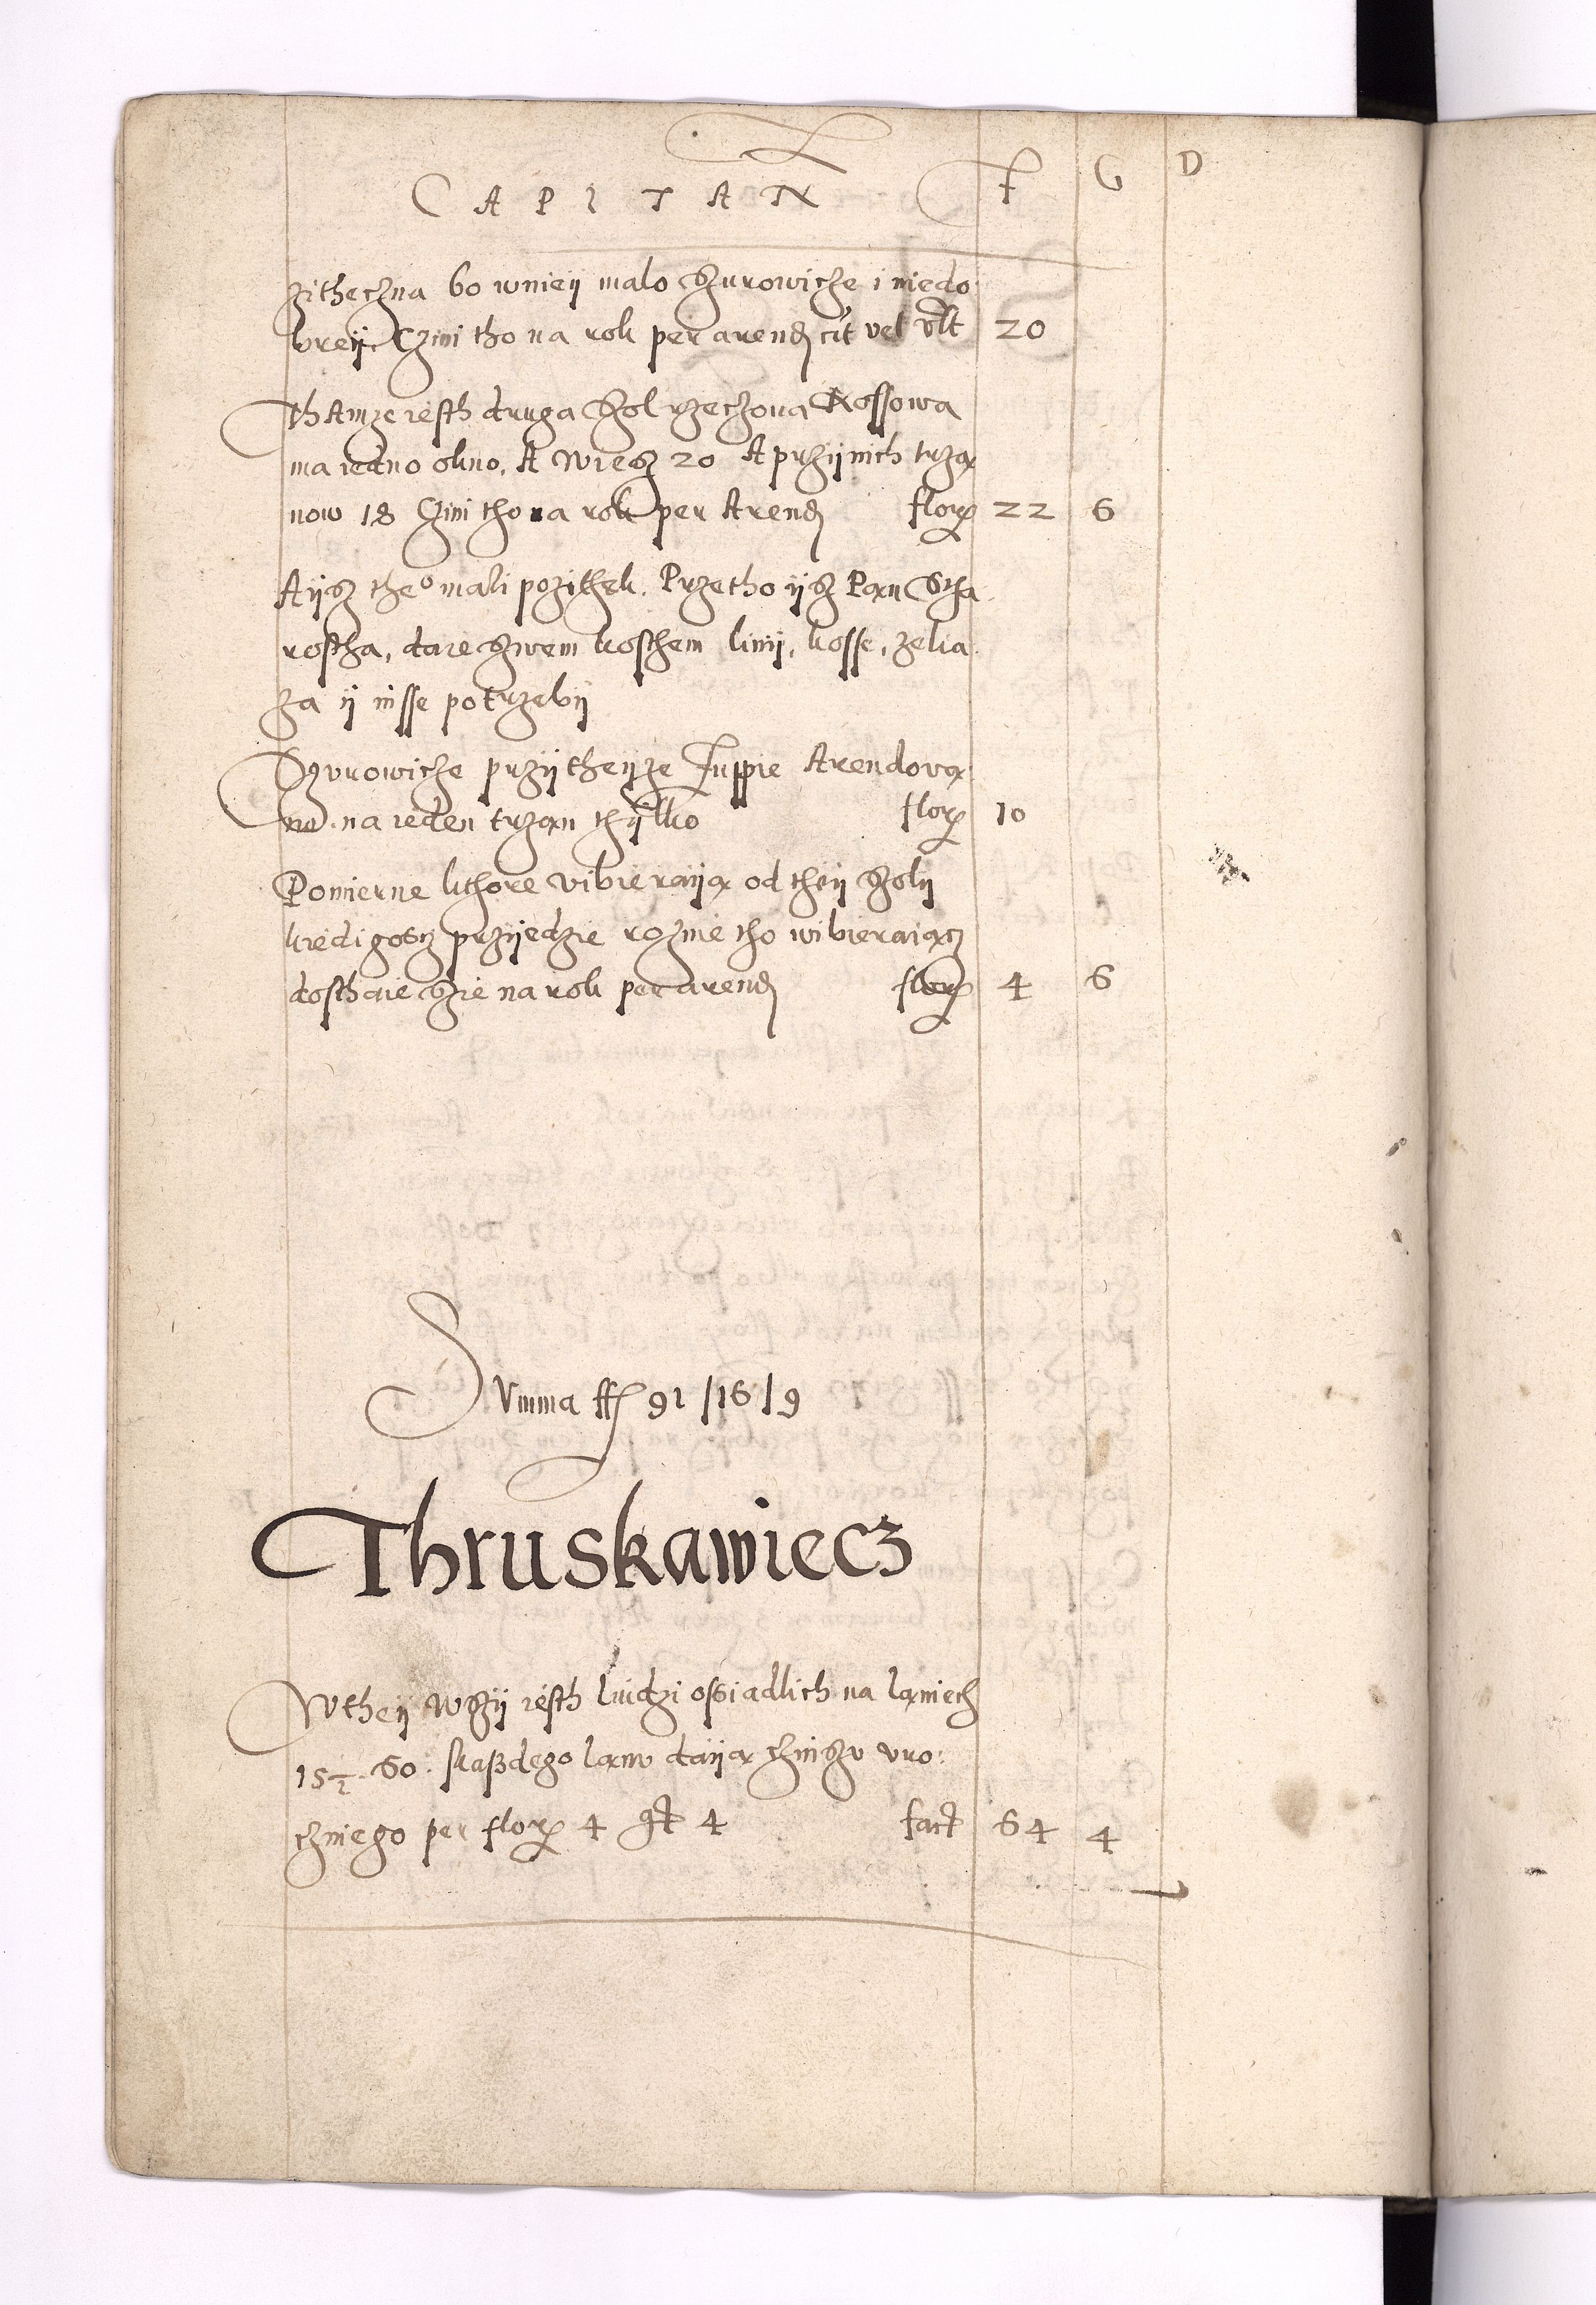 CAPITAN F G D
zithechna bo wniey malo Surowicze i niedo
brey. Czini tho na rok per arend cit vel vlt 20
Thamze iesth druga Sol rzeczona Kossowa
ma iedno okno. A Wiesz 20 A przÿ nich trzą
now 18 Czini tho na rok per Arend flor 22 6
A ysz the° mali pozithek. Przetho ysz Pan Stha
rostha, daie Swem kosthem linÿ, kosse, zelia
za ÿ insse potrzebÿ
Surowicze przÿ theÿze Zuppie Arendową
no. na ieden trzan thÿlko flor 10
Pomierne kthore vibieraÿą od theÿ Solÿ
kiedi gosz przÿiedzie roznie tho wibieraiącz
dosthaie Sie na rok per arend flor 4 6
Summa ff 91 /16/9
Thruskawiecz
Wtheÿ Wsÿ iesth luidzi ossiadlich na laniech
15½. Go. skaßdego lanu daÿą czinszu vro:
czniego per flor 4 gt 4 fact 64 4